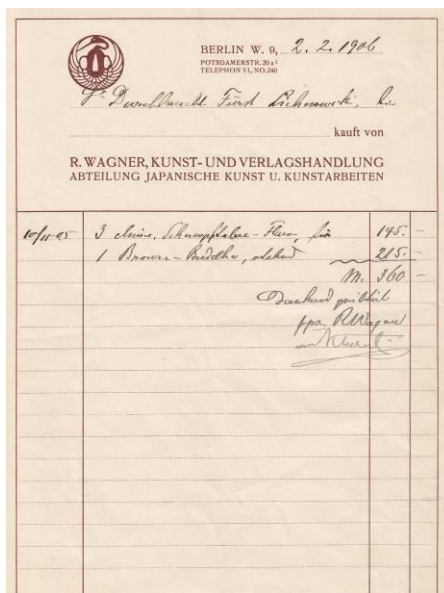 BERLIN W. 9, 2. 2. 1906
POTSDAMERSTR. 20a I
TELEPHON VI, NO. 240
Sr. Durchlaucht Fürst Lichnowski,
kauft von
R. WAGNER, KUNST- UND VERLAGSHANDLUNG
ABTEILUNG JAPANISCHE KUNST U. KUNSTARBEITEN
10/11.05 3 chines. Schnupftabac-Flacon, für 145.-
1 Bronze-Buddha, stehend 215.-
M. 360-
Dankend quittirt
ppa. RWagner